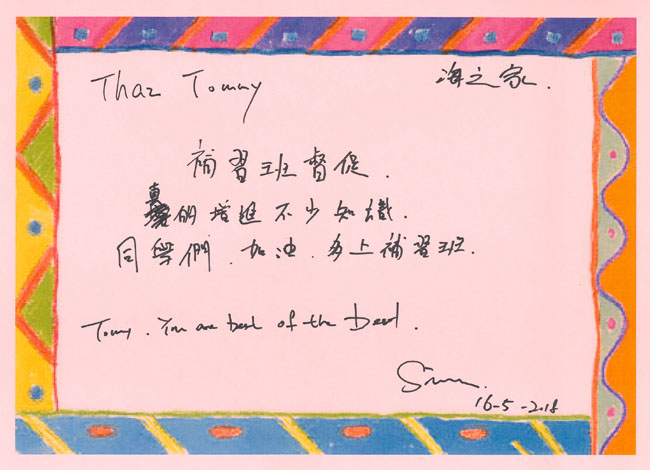 Thaz Tommy 海之家.
補習班督促.
真的增進不少知識.
同學們.加油.多上補習班.
Tommy. You are best of the best.
16-5-2018